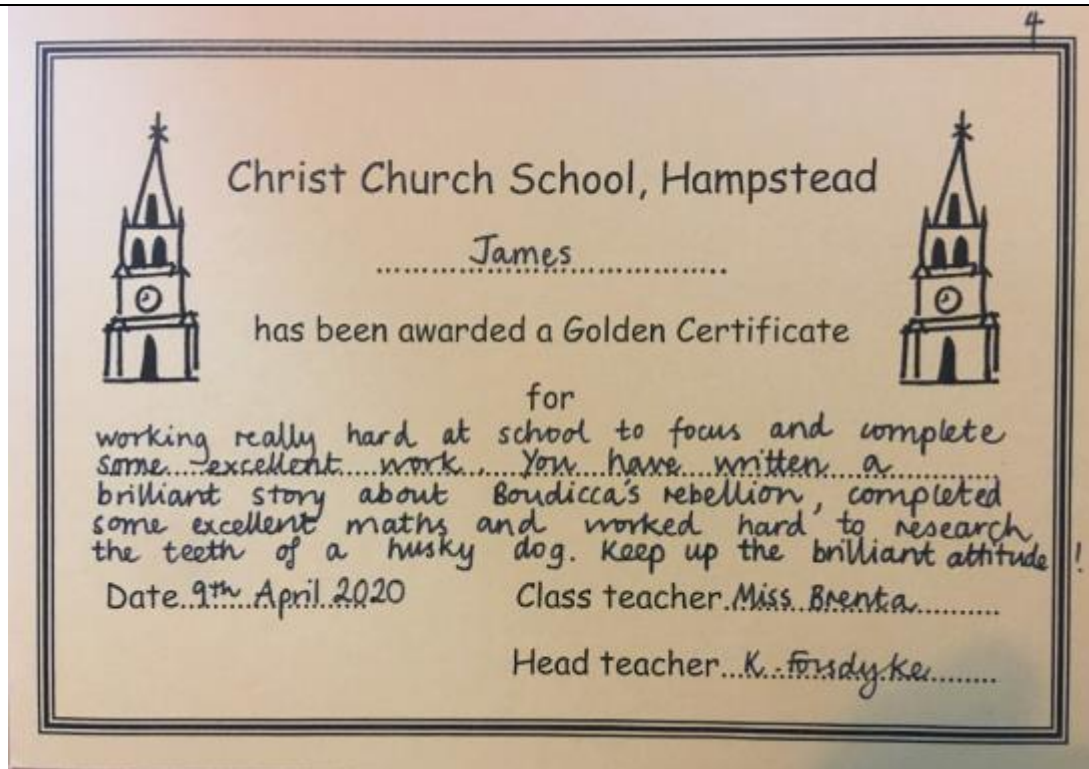 4
Christ Church School, Hampstead
James
has been awarded a Golden Certificate
for
working really hard at school to focus and complete
some excellent work. You have written a
brilliant story about Boudicca's rebellion, completed
some excellent maths and worked hard to research
the teeth of a husky dog. Keep up the brilliant attitude!
Date 9th April 2020 Class teacher Miss Brenta
Head teacher K. Forsdyke